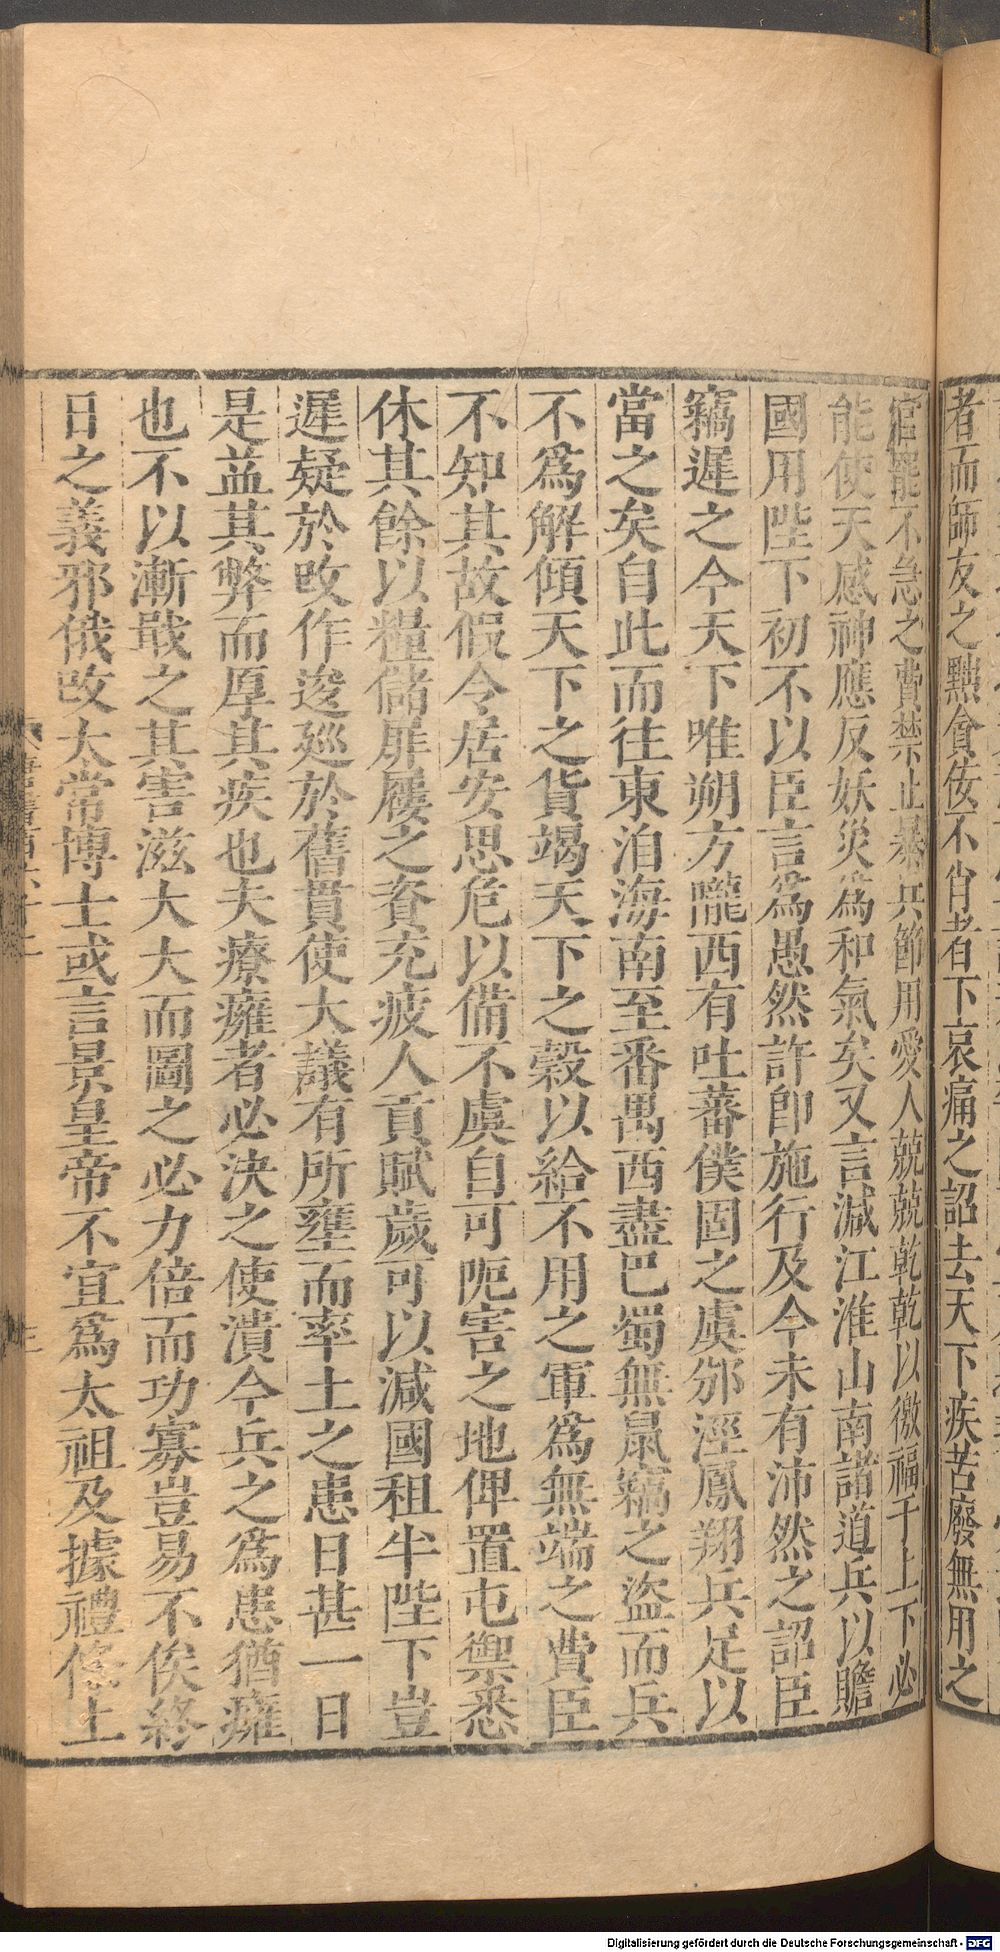 者而師友之黜貪佞不肖者下哀痛之詔去天下疾苦廢無用之
官罷不急之費禁止暴兵節用愛人兢兢乾乾以徼福于上下必
能使天感神應反妖災為和氣矣又言減江淮山南諸道兵以贍
國用陛下初不以臣言為愚然許即施行及今未有沛然之詔臣
竊遲之今天下唯朔方隴西有吐蕃僕固之虞邠涇鳳翔兵足以
當之矣自此而往東洎海南至番禺西盡巴蜀無鼠竊之盜而兵
不為解傾天下之貨竭天下之穀以給不用之軍為無端之費臣
不知其故假令居安思危以備不虞自可阨害之地俾置屯禦悉
休其餘以糧儲屝屨之資充疲人貢賦歲可以減國租半陛下豈
遲疑於改作逡巡於舊貫使大議有所壅而率土之患日甚一日
是益其弊而厚其疾也夫療癰者必決之使潰今兵之為患猶癰
也不以漸戢之其害滋大大而圖之必力倍而功寡豈易不俟終
日之義邪俄改太常博士或言景皇帝不宜為太祖及據禮條上
Digitalisierung gefördert durch die Deutsche Forschungsgemeinschaft - DFG